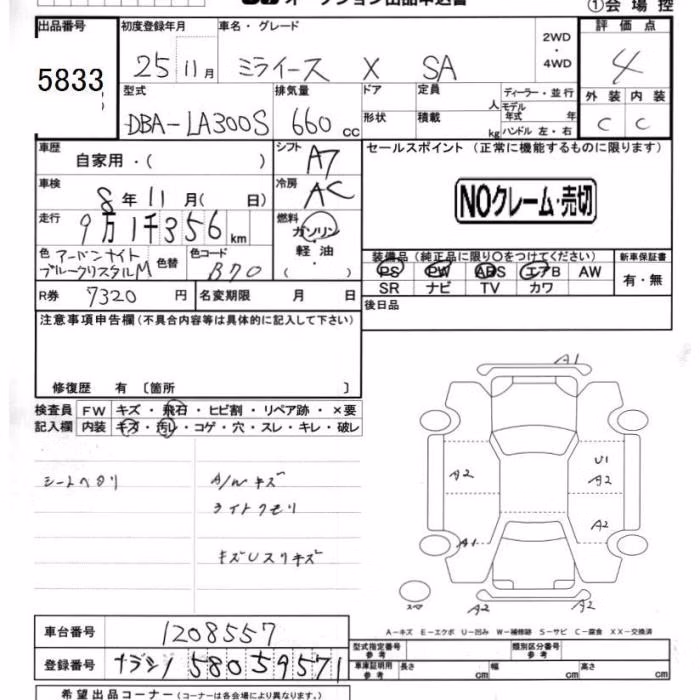 オークション出品申込書
①会場控
出品番号 初度登録年月 車名・グレード 2WD・4WD 評価点
5833 25 11月 ミライース X SA 4
型式 排気量 ドア 定員 人 ディーラー・並行 外装 内装
DBA-LA300S 660cc 形状 積載 kg モデル年式 年 ハンドル 左・右 C C
車歴 自家用・( ) シフト A7 セールスポイント(正常に機能するものに限ります)
車検 8年11月( 日) 冷房 AC NOクレーム・売切
走行 9万1千356km 燃料 ガソリン・軽油・( )
色 アーバンナイトブルークリスタルM 色替 色コード B70
装備品(純正品に限り○をつけてください) 新車保証書
PS PW ABS エアB AW 有・無
SR ナビ TV カワ
R券 7320円 名変期限 月 日 後日品
注意事項申告欄(不具合内容等は具体的に記入して下さい)
修復歴 有〔箇所 〕
検査員 FW キズ・飛石・ヒビ割・リペア跡・×要
記入欄 内装 キズ・汚レ・コゲ・穴・スレ・キレ・破レ
シートヘタリ A/Wキズ
ライトクモリ
キズUスリキズ
A1
A2 U1
A2
A2
A1
スペア A2 A2
A-キズ E-エクボ U-凹み W-補修跡 S-サビ C-腐食 XX-交換済
車台番号 1208557
型式指定番号 参考 類別区分番号 参考
登録番号 ナラシノ 580 5 9571
車庫証明用 参考 長さ cm 幅 cm 高さ cm
希望出品コーナー(コーナーは各会場により異なります。)